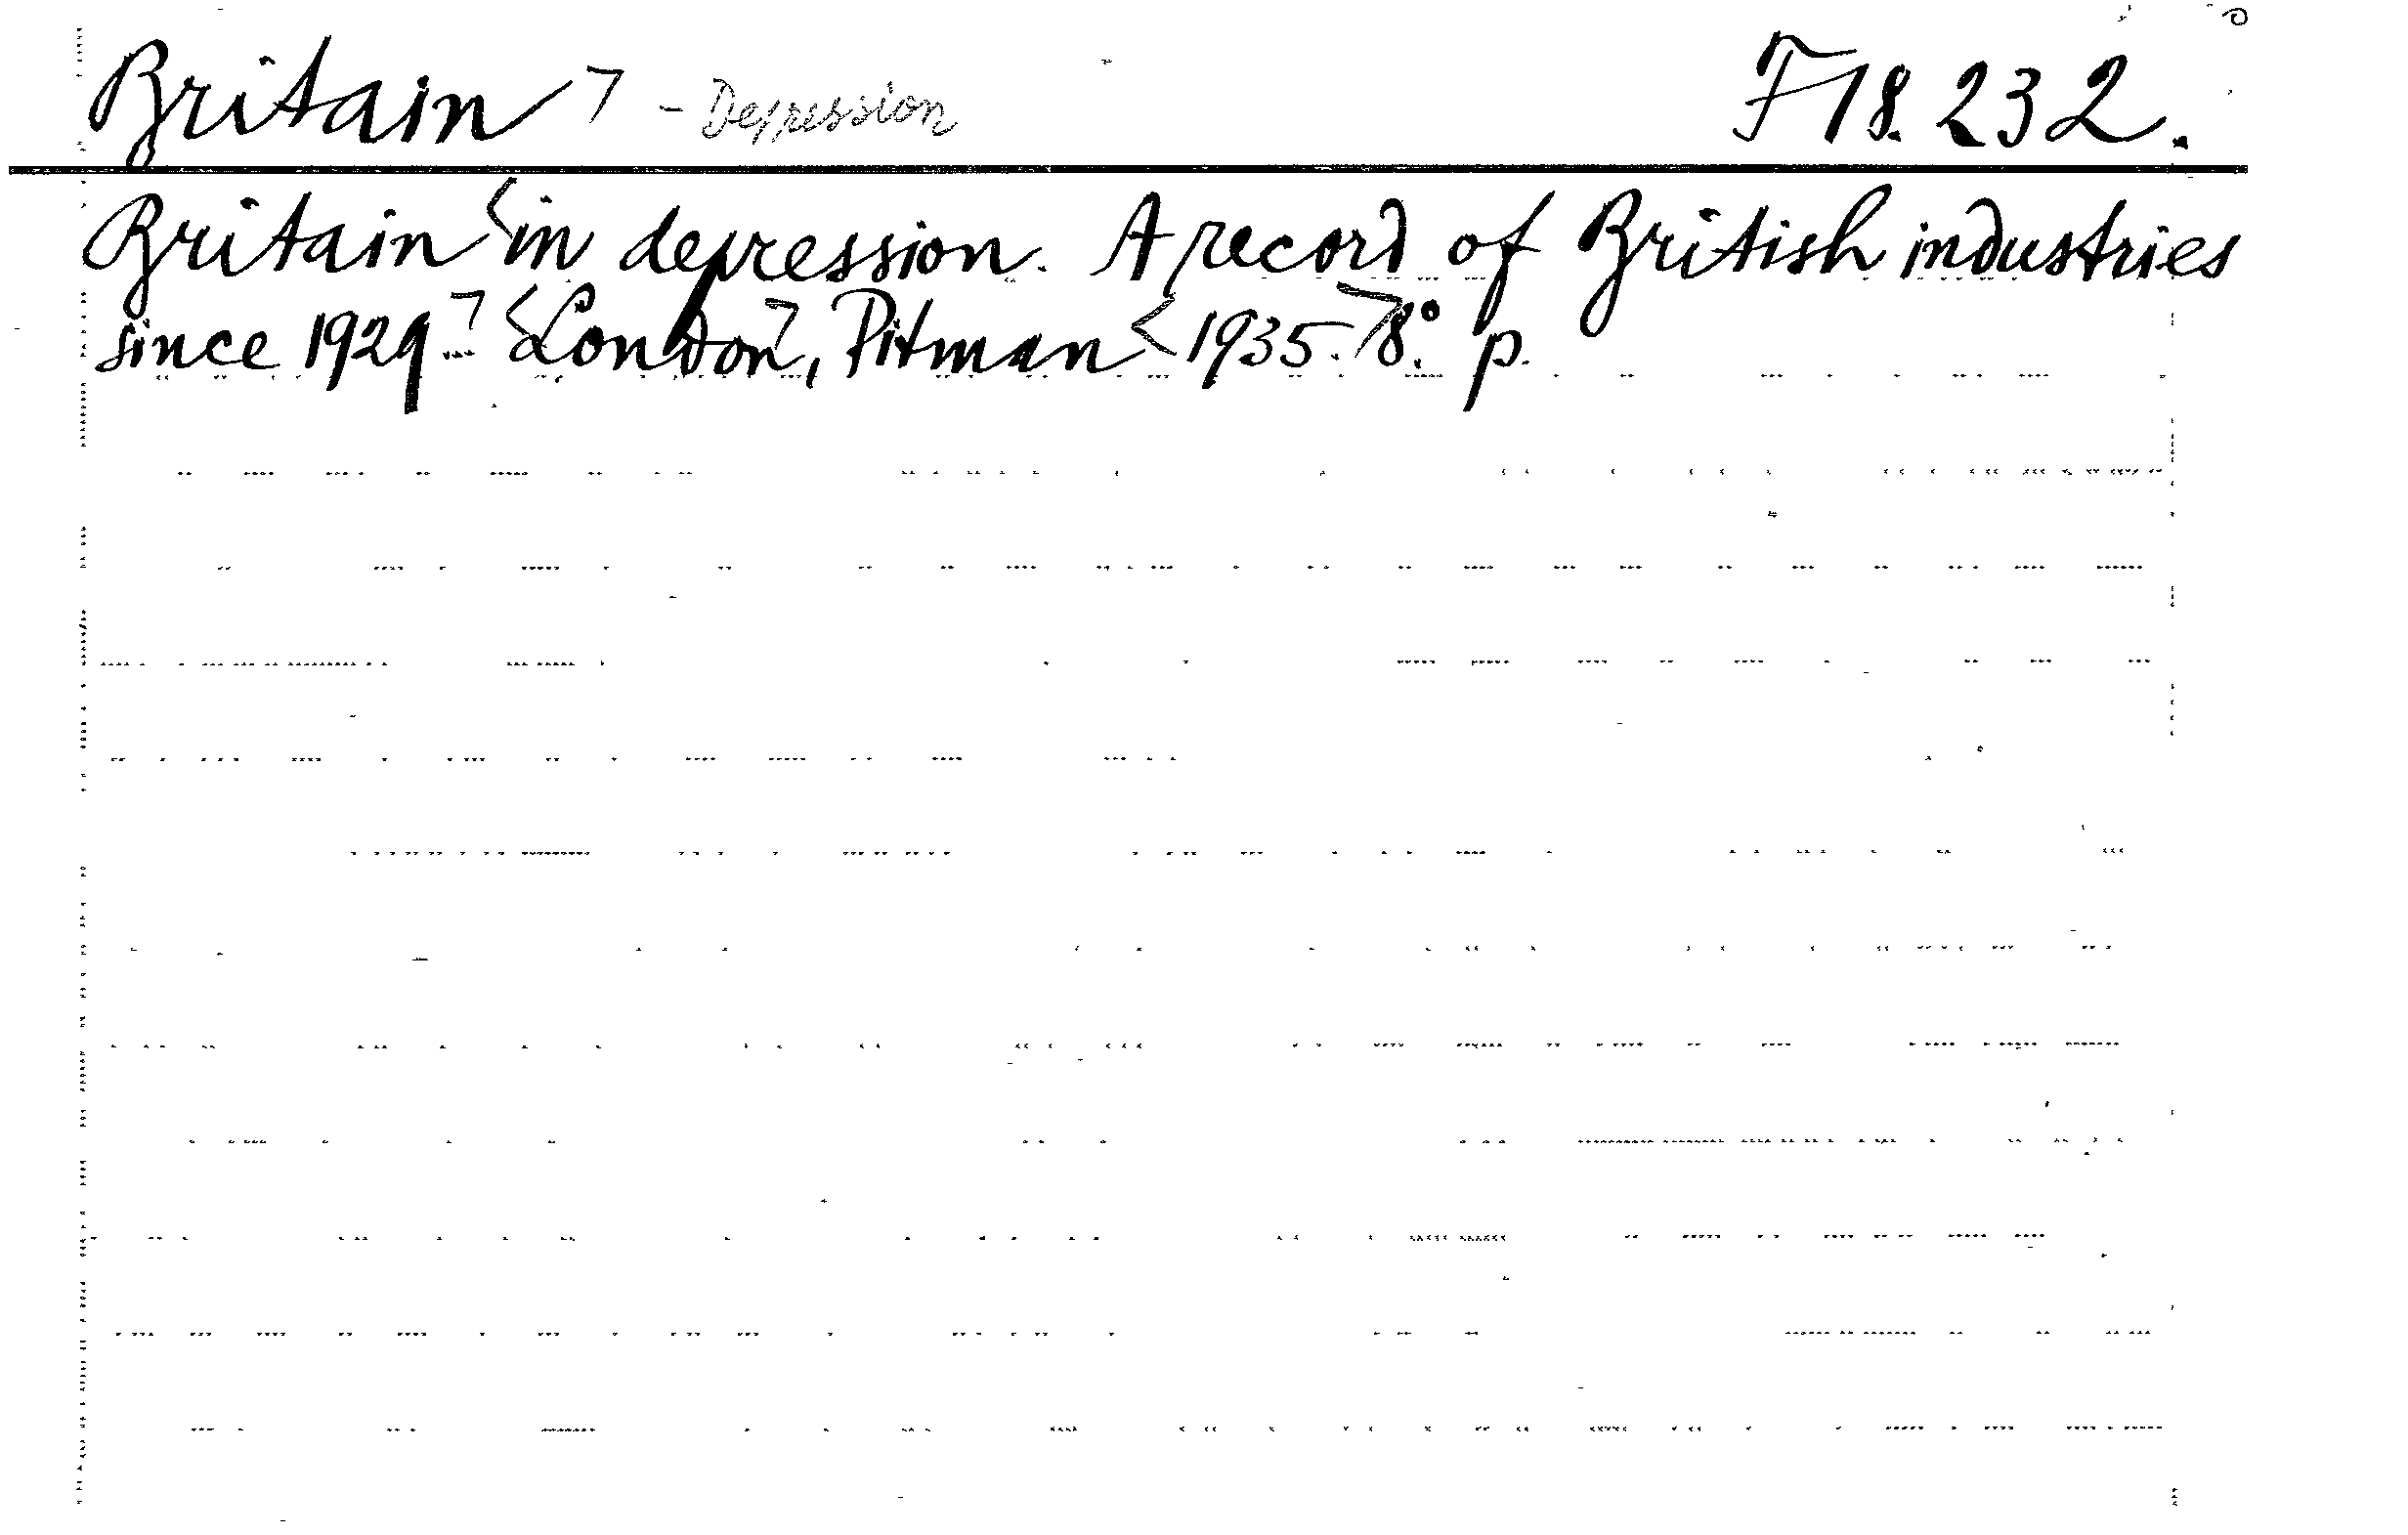 Britain ¬ - Depression F 18.232.
Britain <in depression. A record of British industries
since 1929.¬ <London¬, Pitman <1935.¬ 8.° p.